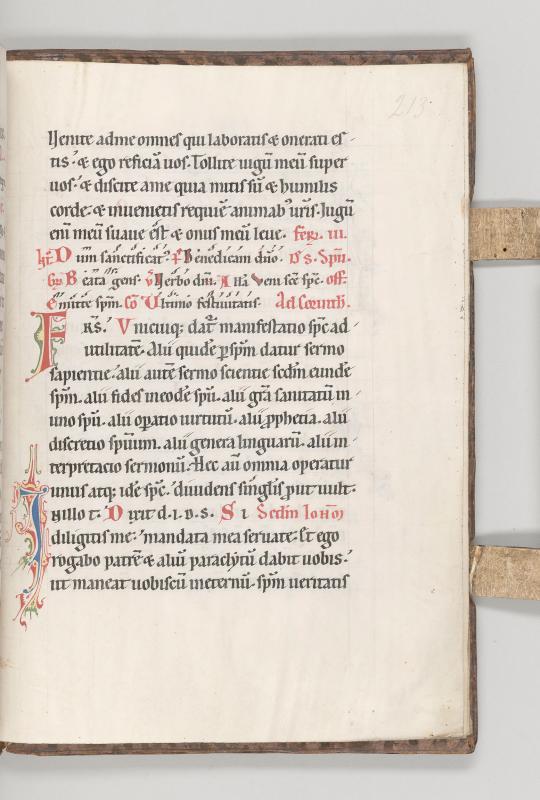 213.
Uenite ad me omnes qui laboratis & onerati es-
tis. & ego reficiā uos. Tollite iugū meū super
uos. & discite a me quia mitis sū & humilis
corde. & inuenietis requiē animab' ur̄is. Iugū
eni meū suaue est & onus meū leue. Fer̄. III.
D um sanctificat' Benedicam dn̄o. Ps. Spm̄.
B eata gens. v̄ Verbo dn̄i. A lla Veni sc̄e sp̄c. off.
Emitte spm̄. Cō Ultimo festiuitatis. Ad Corinth.
FRS. Unicuiq; dat' manifestatio sp̄c ad
utilitatē. Alii quidē p spm̄ datur sermo
sapientie. alii autē sermo scientie scd̄m eundē
spm̄. alii fides in eodē spū. alii gr̄a sanitatū in
uno spū. alii opatio uirtutū. alii pphetia. alii
discretio spirituum. alii genera linguarū. alii in-
terpretacio sermonū. Hec aū omnia operatur
unus atq; idē sp̄c. diuidens singlis put uult.
IN illo t. D ixit d. i. d. s. S i Scd̄m Iohm̄
diligitis me. mandata mea seruate. Et ego
rogabo patrē & aliū paraclytū dabit uobis.
ut maneat uobiscū in eternū. spm̄ ueritatis